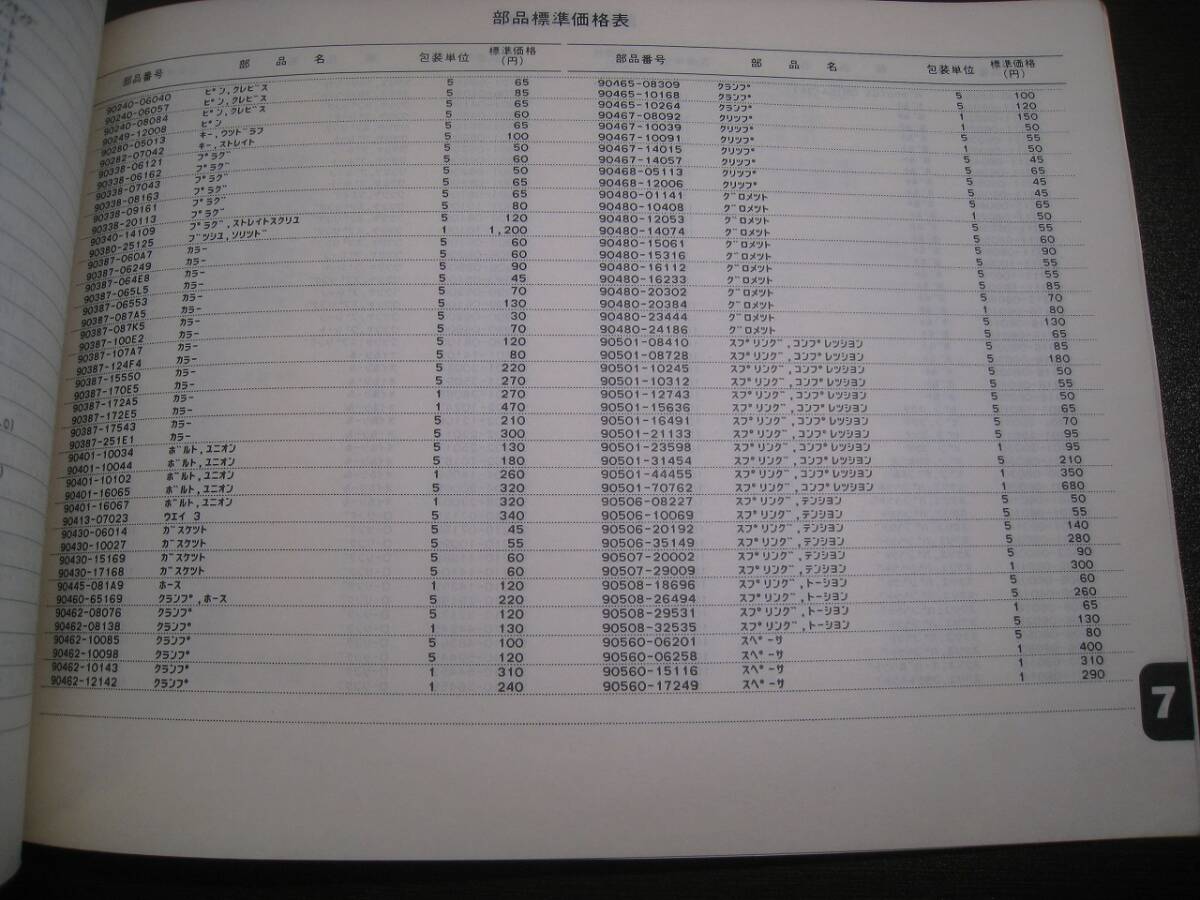 部品標準価格表
部品番号 部品名 包装単位 標準価格(円)
90240-06040 ピン,クレビス 5 65
90240-06057 ピン,クレビス 5 85
90240-08084 ピン,クレビス 5 65
90249-12008 ピン 5 60
90280-05013 キー,ウツドラフ 5 65
90282-07042 キー,ストレイト 5 100
90338-06121 プラグ 5 50
90338-06162 プラグ 5 60
90338-07043 プラグ 5 50
90338-08163 プラグ 5 65
90338-09161 プラグ 5 65
90338-20113 プラグ 5 80
90340-14109 プラグ,ストレイトスクリユ 5 120
90380-25125 ブツシユ,ソリツド 1 1,200
90387-060A7 カラー 5 60
90387-06249 カラー 5 60
90387-064E8 カラー 5 90
90387-065L5 カラー 5 45
90387-06553 カラー 5 70
90387-087A5 カラー 5 130
90387-087K5 カラー 5 30
90387-100E2 カラー 5 70
90387-107A7 カラー 5 120
90387-124F4 カラー 5 80
90387-15550 カラー 5 220
90387-170E5 カラー 5 270
90387-172A5 カラー 1 270
90387-172E5 カラー 1 470
90387-17543 カラー 5 210
90387-251E1 カラー 5 300
90401-10034 ボルト,ユニオン 5 130
90401-10044 ボルト,ユニオン 5 180
90401-10102 ボルト,ユニオン 1 260
90401-16065 ボルト,ユニオン 5 320
90401-16067 ボルト,ユニオン 1 320
90413-07023 ウエイ 3 5 340
90430-06014 ガスケツト 5 45
90430-10027 ガスケツト 5 55
90430-15169 ガスケツト 5 60
90430-17168 ガスケツト 5 60
90445-081A9 ホース 1 120
90460-65169 クランプ,ホース 5 220
90462-08076 クランプ 5 120
90462-08138 クランプ 1 130
90462-10085 クランプ 5 100
90462-10098 クランプ 5 120
90462-10143 クランプ 1 310
90462-12142 クランプ 1 240
部品番号 部品名 包装単位 標準価格(円)
90465-08309 クランプ 5 100
90465-10168 クランプ 5 120
90465-10264 クランプ 1 150
90467-08092 クリツプ 1 50
90467-10039 クリツプ 5 55
90467-10091 クリツプ 1 50
90467-14015 クリツプ 5 45
90467-14057 クリツプ 5 65
90468-05113 クリツプ 5 45
90468-12006 クリツプ 5 45
90480-01141 グロメツト 5 65
90480-10408 グロメツト 1 50
90480-12053 グロメツト 5 55
90480-14074 グロメツト 5 60
90480-15061 グロメツト 5 90
90480-15316 グロメツト 5 55
90480-16112 グロメツト 5 55
90480-16233 グロメツト 5 85
90480-20302 グロメツト 5 70
90480-20384 グロメツト 1 80
90480-23444 グロメツト 5 130
90480-24186 グロメツト 5 65
90501-08410 スプリング,コンプレツシヨン 5 85
90501-08728 スプリング,コンプレツシヨン 5 180
90501-10245 スプリング,コンプレツシヨン 5 50
90501-10312 スプリング,コンプレツシヨン 5 55
90501-12743 スプリング,コンプレツシヨン 5 50
90501-15636 スプリング,コンプレツシヨン 5 65
90501-16491 スプリング,コンプレツシヨン 5 70
90501-21133 スプリング,コンプレツシヨン 5 95
90501-23598 スプリング,コンプレツシヨン 1 95
90501-31454 スプリング,コンプレツシヨン 5 210
90501-44455 スプリング,コンプレツシヨン 1 350
90501-70762 スプリング,コンプレツシヨン 1 680
90506-08227 スプリング,テンシヨン 5 50
90506-10069 スプリング,テンシヨン 5 55
90506-20192 スプリング,テンシヨン 5 140
90506-35149 スプリング,テンシヨン 5 280
90507-20002 スプリング,テンシヨン 5 90
90507-29009 スプリング,テンシヨン 1 300
90508-18696 スプリング,トーシヨン 5 60
90508-26494 スプリング,トーシヨン 5 260
90508-29531 スプリング,トーシヨン 1 65
90508-32535 スプリング,トーシヨン 5 130
90560-06201 スペーサ 5 80
90560-06258 スペーサ 1 400
90560-15116 スペーサ 1 310
90560-17249 スペーサ 1 290
7